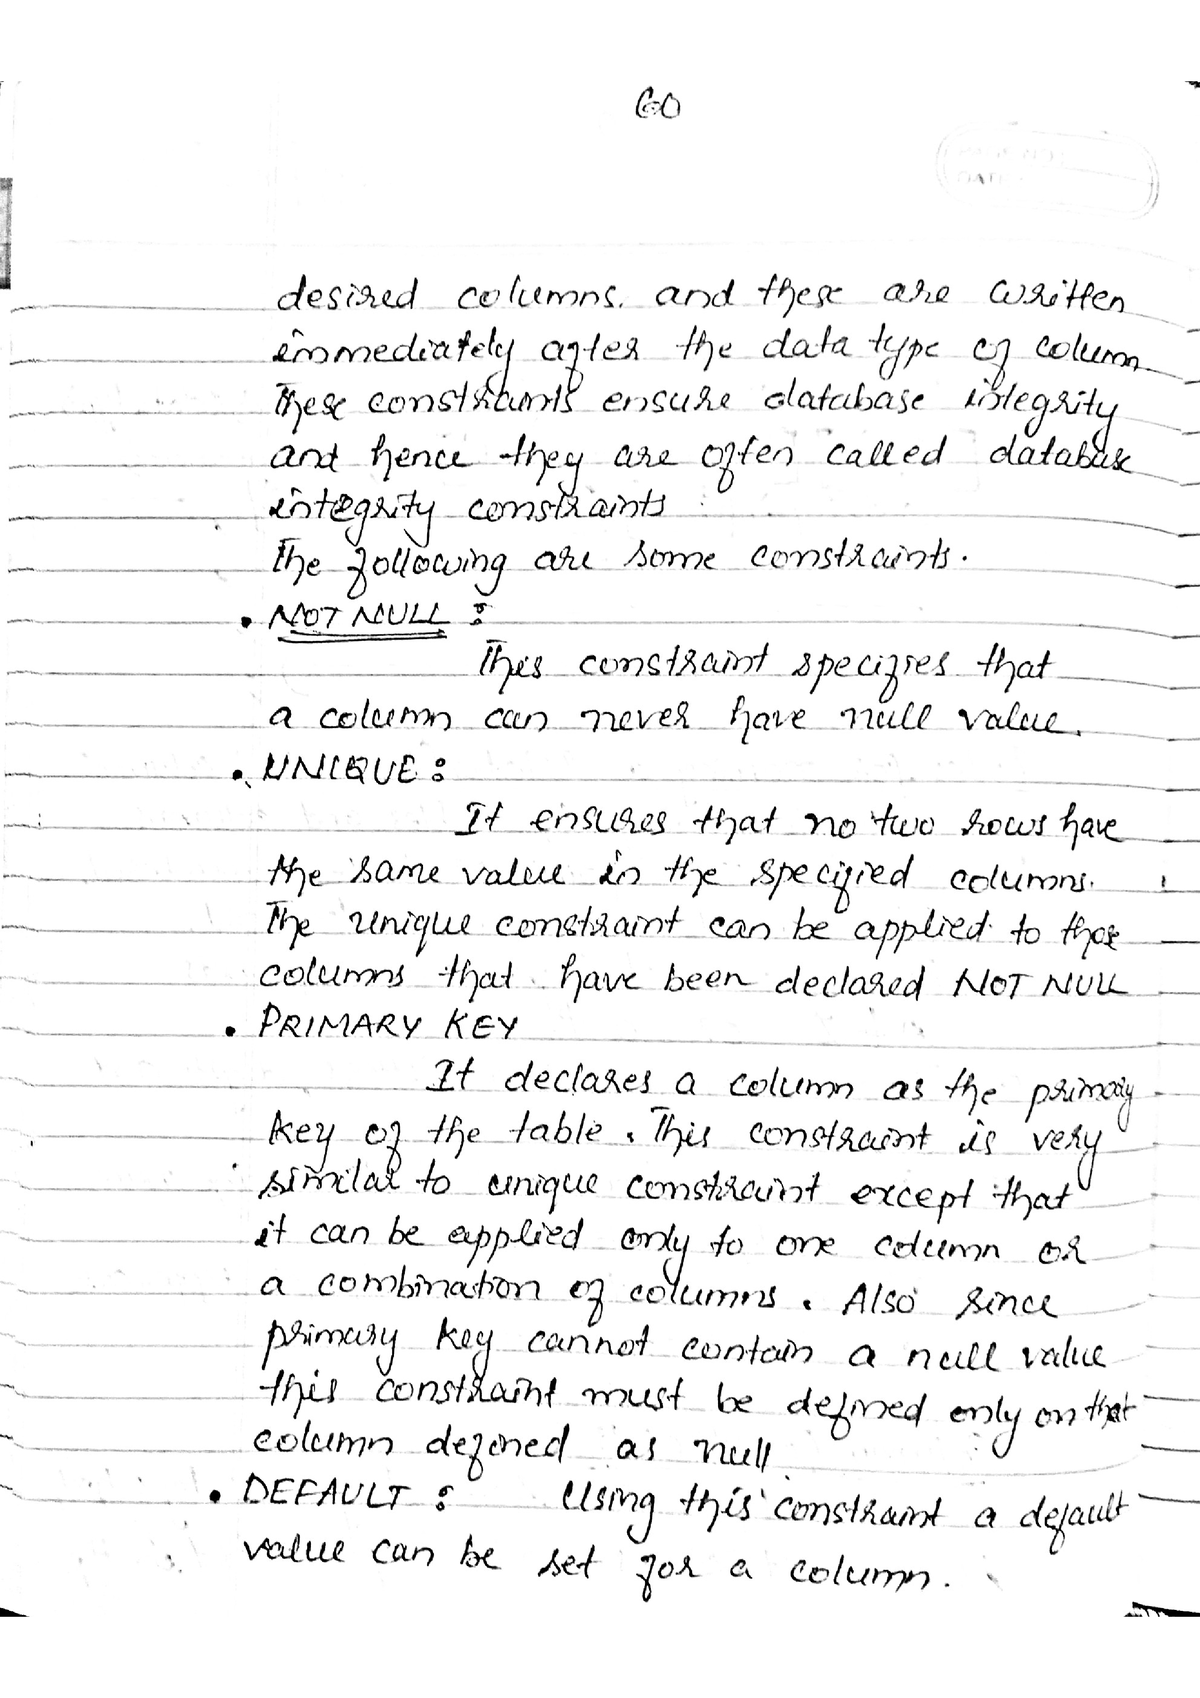 60
desired columns. and these are written
immediately after the data type of column
These constraints ensure database integrity
and hence they are often called database
integrity constraints
The following are some constraints.
• NOT NULL :
This constraint specifies that
a column can never have null value.
• UNIQUE :
It ensures that no two rows have
the same value in the specified columns.
The unique constraint can be applied to those
columns that have been declared NOT NULL
• PRIMARY KEY
It declares a column as the primary
key of the table. This constraint is very
similar to unique constraint except that
it can be applied only to one column or
a combination of columns. Also since
primary key cannot contain a null value
this constraint must be defined only on that
column defined as null
• DEFAULT : Using this constraint a default
value can be set for a column.